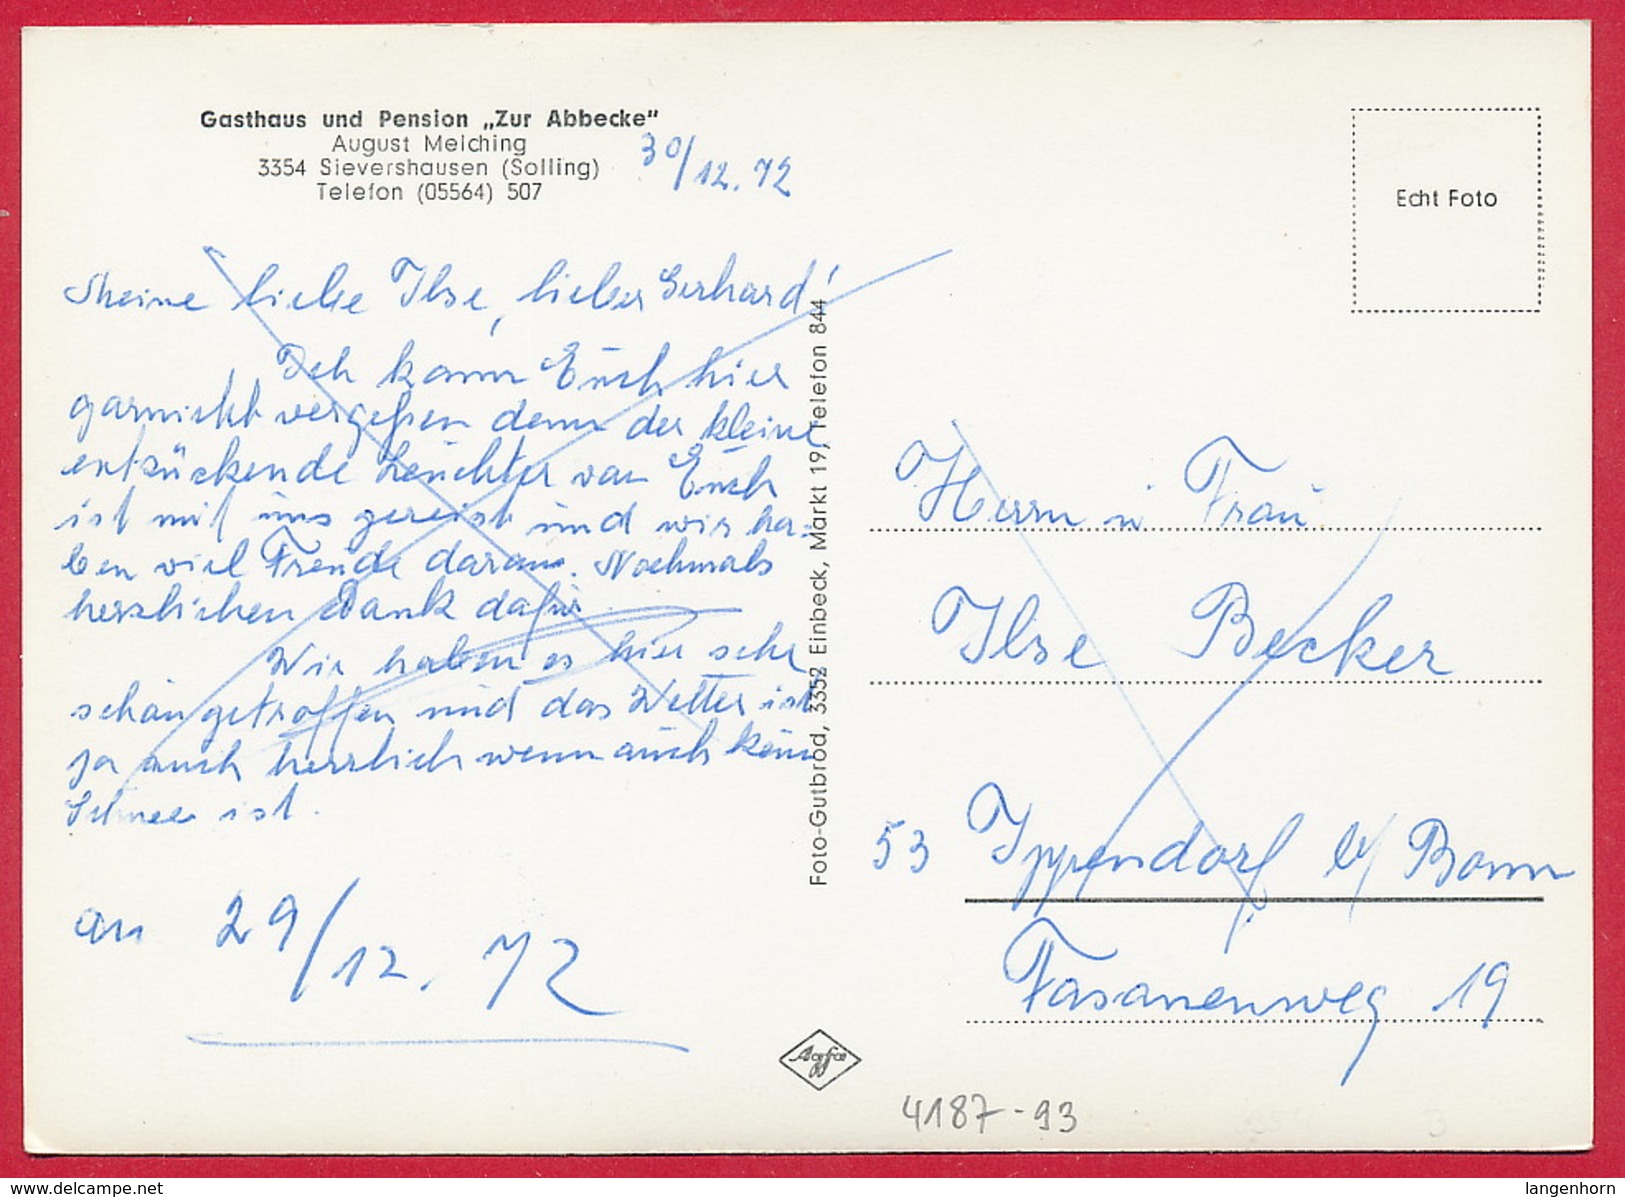 Gasthaus und Pension „Zur Abbecke"
August Melching
3354 Sievershausen (Solling)
Telefon (05564) 507
30/12.72
Meine liebe Ilse, lieber Gerhard!
Ich kann Euch hier
garnicht vergeßen denn der kleine
entzückende Leuchter von Euch
ist mit uns gereist und wir ha-
ben viel Freude daran. Nochmals
herzlichen Dank dafür.
Wir haben es hier sehr
schön getroffen und das Wetter ist
ja auch herrlich wenn auch kein
Schnee ist.
an 29/12.72
Foto-Gutbrod, 3352 Einbeck, Markt 19, Telefon 844
Agfa
Echt Foto
Herrn u Frau
Ilse Becker
53 Ippendorf b/ Bonn
Fasanenweg 19
4187-93
www.delcampe.net
langenhorn